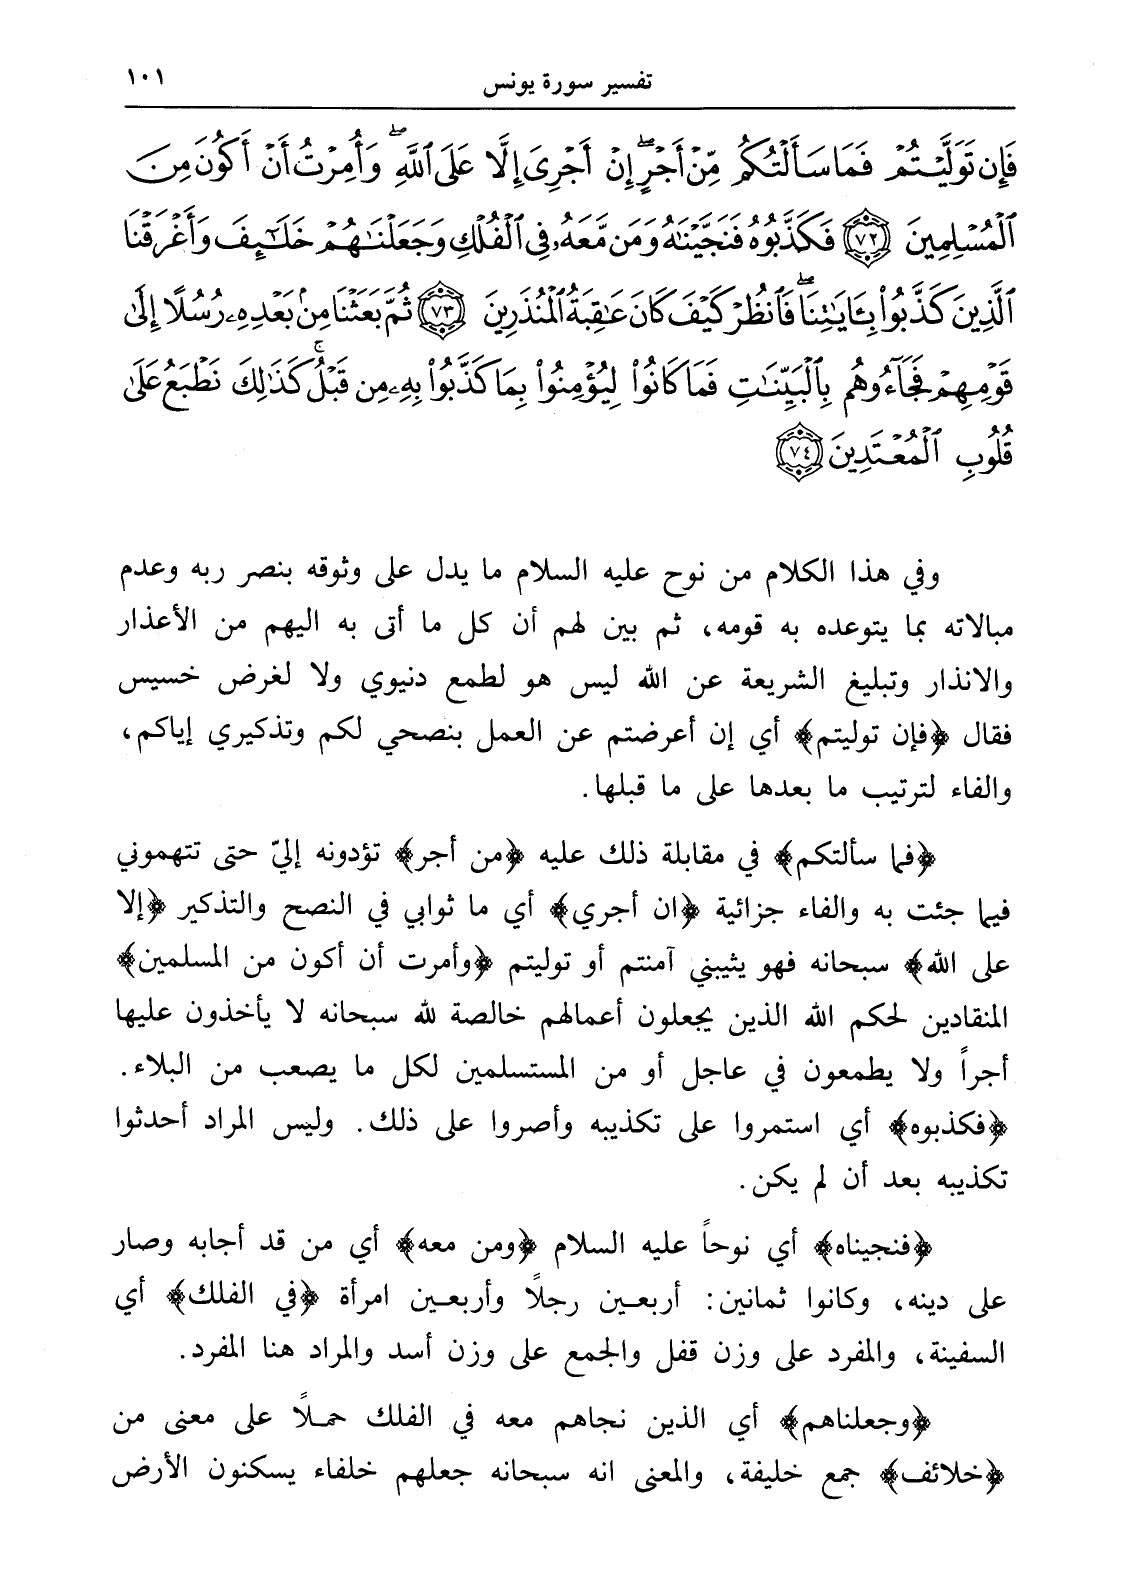 تفسير سورة يونس ١٠١
فَإِن تَوَلَّيْتُمْ فَمَا سَأَلْتُكُم مِّنْ أَجْرٍ ۖ إِنْ أَجْرِىَ إِلَّا عَلَى ٱللَّهِ ۖ وَأُمِرْتُ أَنْ أَكُونَ مِنَ
ٱلْمُسْلِمِينَ ٧٢ فَكَذَّبُوهُ فَنَجَّيْنَٰهُ وَمَن مَّعَهُۥ فِى ٱلْفُلْكِ وَجَعَلْنَٰهُمْ خَلَٰٓئِفَ وَأَغْرَقْنَا
ٱلَّذِينَ كَذَّبُوا۟ بِـَٔايَٰتِنَا ۖ فَٱنظُرْ كَيْفَ كَانَ عَٰقِبَةُ ٱلْمُنذَرِينَ ٧٣ ثُمَّ بَعَثْنَا مِنۢ بَعْدِهِۦ رُسُلًا إِلَىٰ
قَوْمِهِمْ فَجَآءُوهُم بِٱلْبَيِّنَٰتِ فَمَا كَانُوا۟ لِيُؤْمِنُوا۟ بِمَا كَذَّبُوا۟ بِهِۦ مِن قَبْلُ ۚ كَذَٰلِكَ نَطْبَعُ عَلَىٰ
قُلُوبِ ٱلْمُعْتَدِينَ ٧٤
وفي هذا الكلام من نوح عليه السلام ما يدل على وثوقه بنصر ربه وعدم
مبالاته بما يتوعده به قومه، ثم بين لهم أن كل ما أتى به اليهم من الأعذار
والانذار وتبليغ الشريعة عن الله ليس هو لطمع دنيوي ولا لغرض خسيس
فقال ﴿فإن توليتم﴾ أي إن أعرضتم عن العمل بنصحي لكم وتذكيري إياكم،
والفاء لترتيب ما بعدها على ما قبلها.
﴿فما سألتكم﴾ في مقابلة ذلك عليه ﴿من أجر﴾ تؤدونه إليّ حتى تتهموني
فيما جئت به والفاء جزائية ﴿ان أجري﴾ أي ما ثوابي في النصح والتذكير ﴿إلا
على الله﴾ سبحانه فهو يثيبني آمنتم أو توليتم ﴿وأمرت أن أكون من المسلمين﴾
المنقادين لحكم الله الذين يجعلون أعمالهم خالصة لله سبحانه لا يأخذون عليها
أجراً ولا يطمعون في عاجل أو من المستسلمين لكل ما يصعب من البلاء.
﴿فكذبوه﴾ أي استمروا على تكذيبه وأصروا على ذلك. وليس المراد أحدثوا
تكذيبه بعد أن لم يكن.
﴿فنجيناه﴾ أي نوحاً عليه السلام ﴿ومن معه﴾ أي من قد أجابه وصار
على دينه، وكانوا ثمانين: أربعين رجلًا وأربعين امرأة ﴿في الفلك﴾ أي
السفينة، والمفرد على وزن قفل والجمع على وزن أسد والمراد هنا المفرد.
﴿وجعلناهم﴾ أي الذين نجاهم معه في الفلك حملًا على معنى من
﴿خلائف﴾ جمع خليفة، والمعنى انه سبحانه جعلهم خلفاء يسكنون الأرض